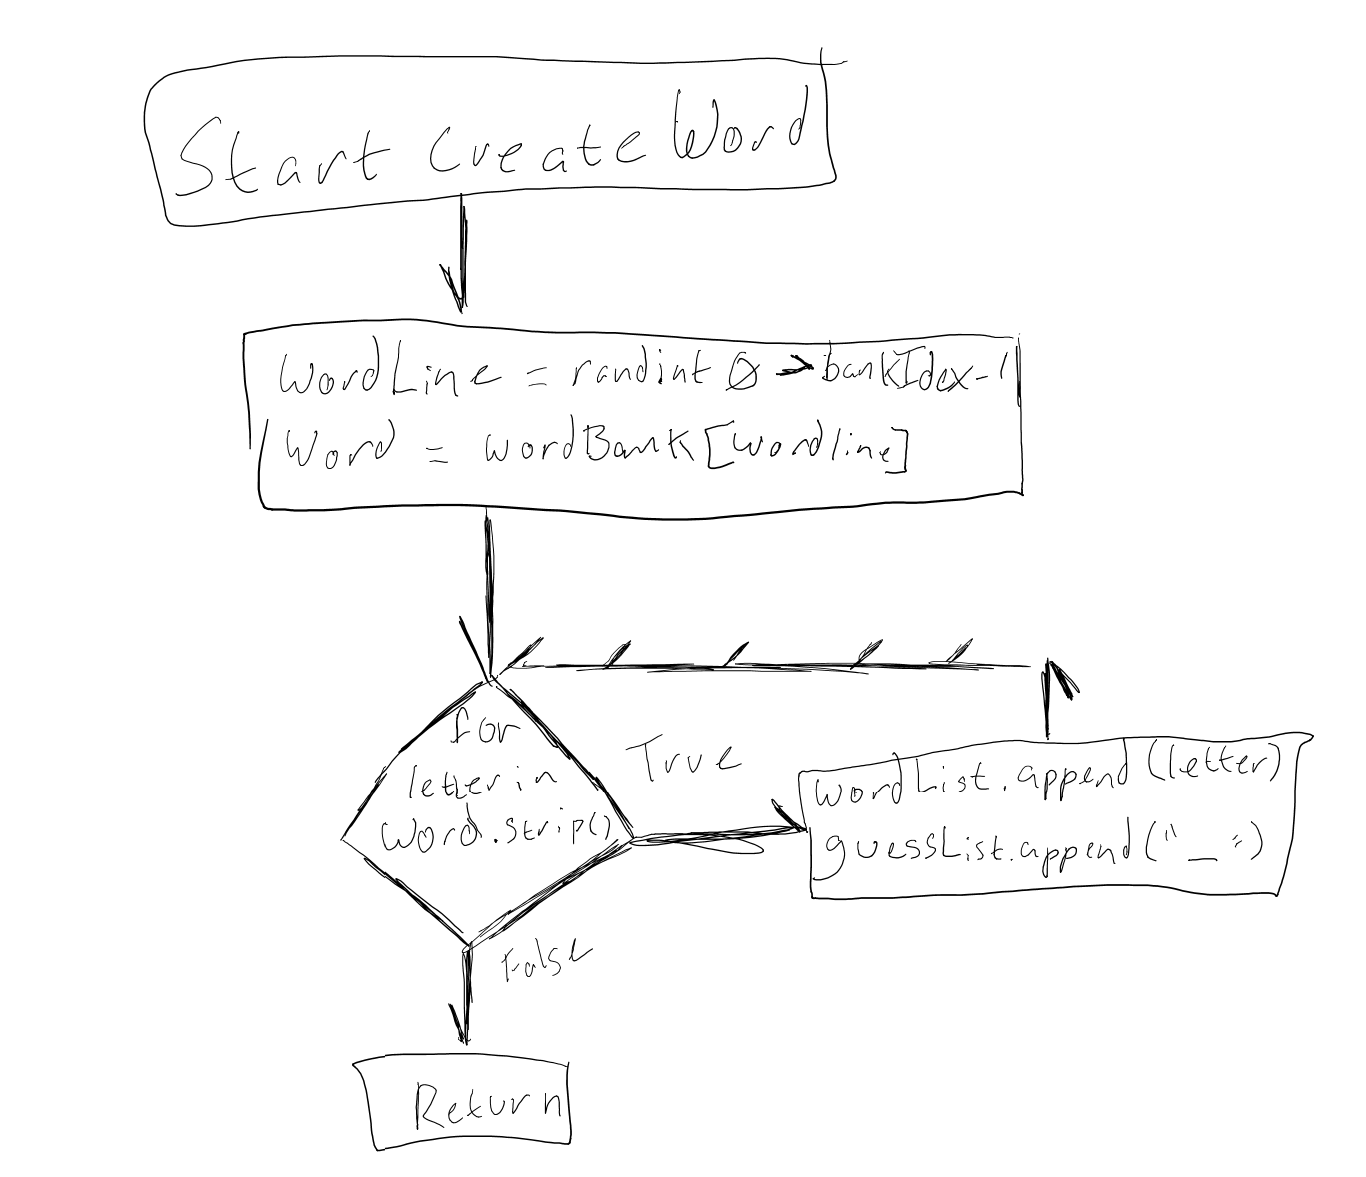 Start Create Word
WordLine = randint 0 -> bankIdex-1
Word = wordBank[wordline]
for
letter in
Word.strip()
True
wordList.append(letter)
guessList.append("_")
False
Return